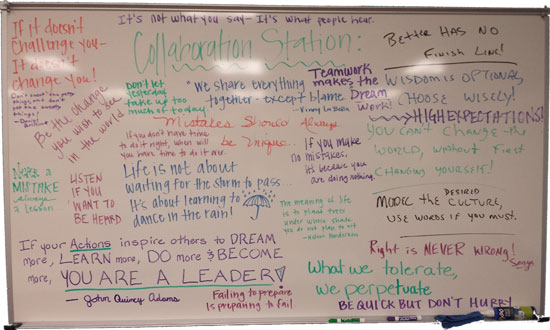 It's not what you say - It's what people hear.
Collaboration Station:
If it doesn't
challenge you -
It doesn't
change you!
Better HAS NO
FINISH LINE!
Don't let
yesterday
take up too
much of today.
"We share everything
together - except blame"
Teamwork
makes the
Dream
Work!
WISDOM IS OPTIONAL
CHOOSE WISELY!
HIGH EXPECTATIONS!
Be the change
you wish to see
in the world
Mistakes Should Always
be Unique...
If you don't have time
to do it right, when will
you have time to do it over
If you make
no mistakes,
it's because you
are doing nothing.
YOU CAN'T CHANGE the
WORLD, WITHOUT FIRST
CHANGING YOURSELF!
Not a
MISTAKE
always
a lesson
LISTEN
IF YOU
WANT TO
BE HEARD
Life is not about
waiting for the storm to pass...
It's about learning to
dance in the rain!
The meaning of life
is to plant trees
under whose shade
you do not plan to sit
DESIRED
MODEL the CULTURE,
USE WORDS IF YOU MUST.
If your Actions inspire others to DREAM
more, LEARN more, DO more & BECOME
more, YOU ARE A LEADER!
- John Quincy Adams
Failing to prepare
is preparing to fail
Right is NEVER WRONG!
What we tolerate,
we perpetuate
BE QUICK BUT DON'T HURRY!
EXPO